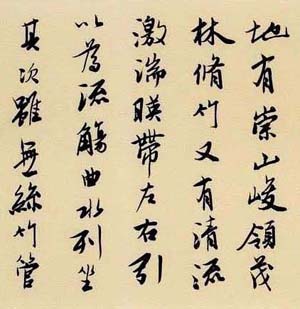 地有崇山峻領茂
林脩竹又有清流
激湍暎帶左右引
以為流觴曲水列坐
其次雖無絲竹管